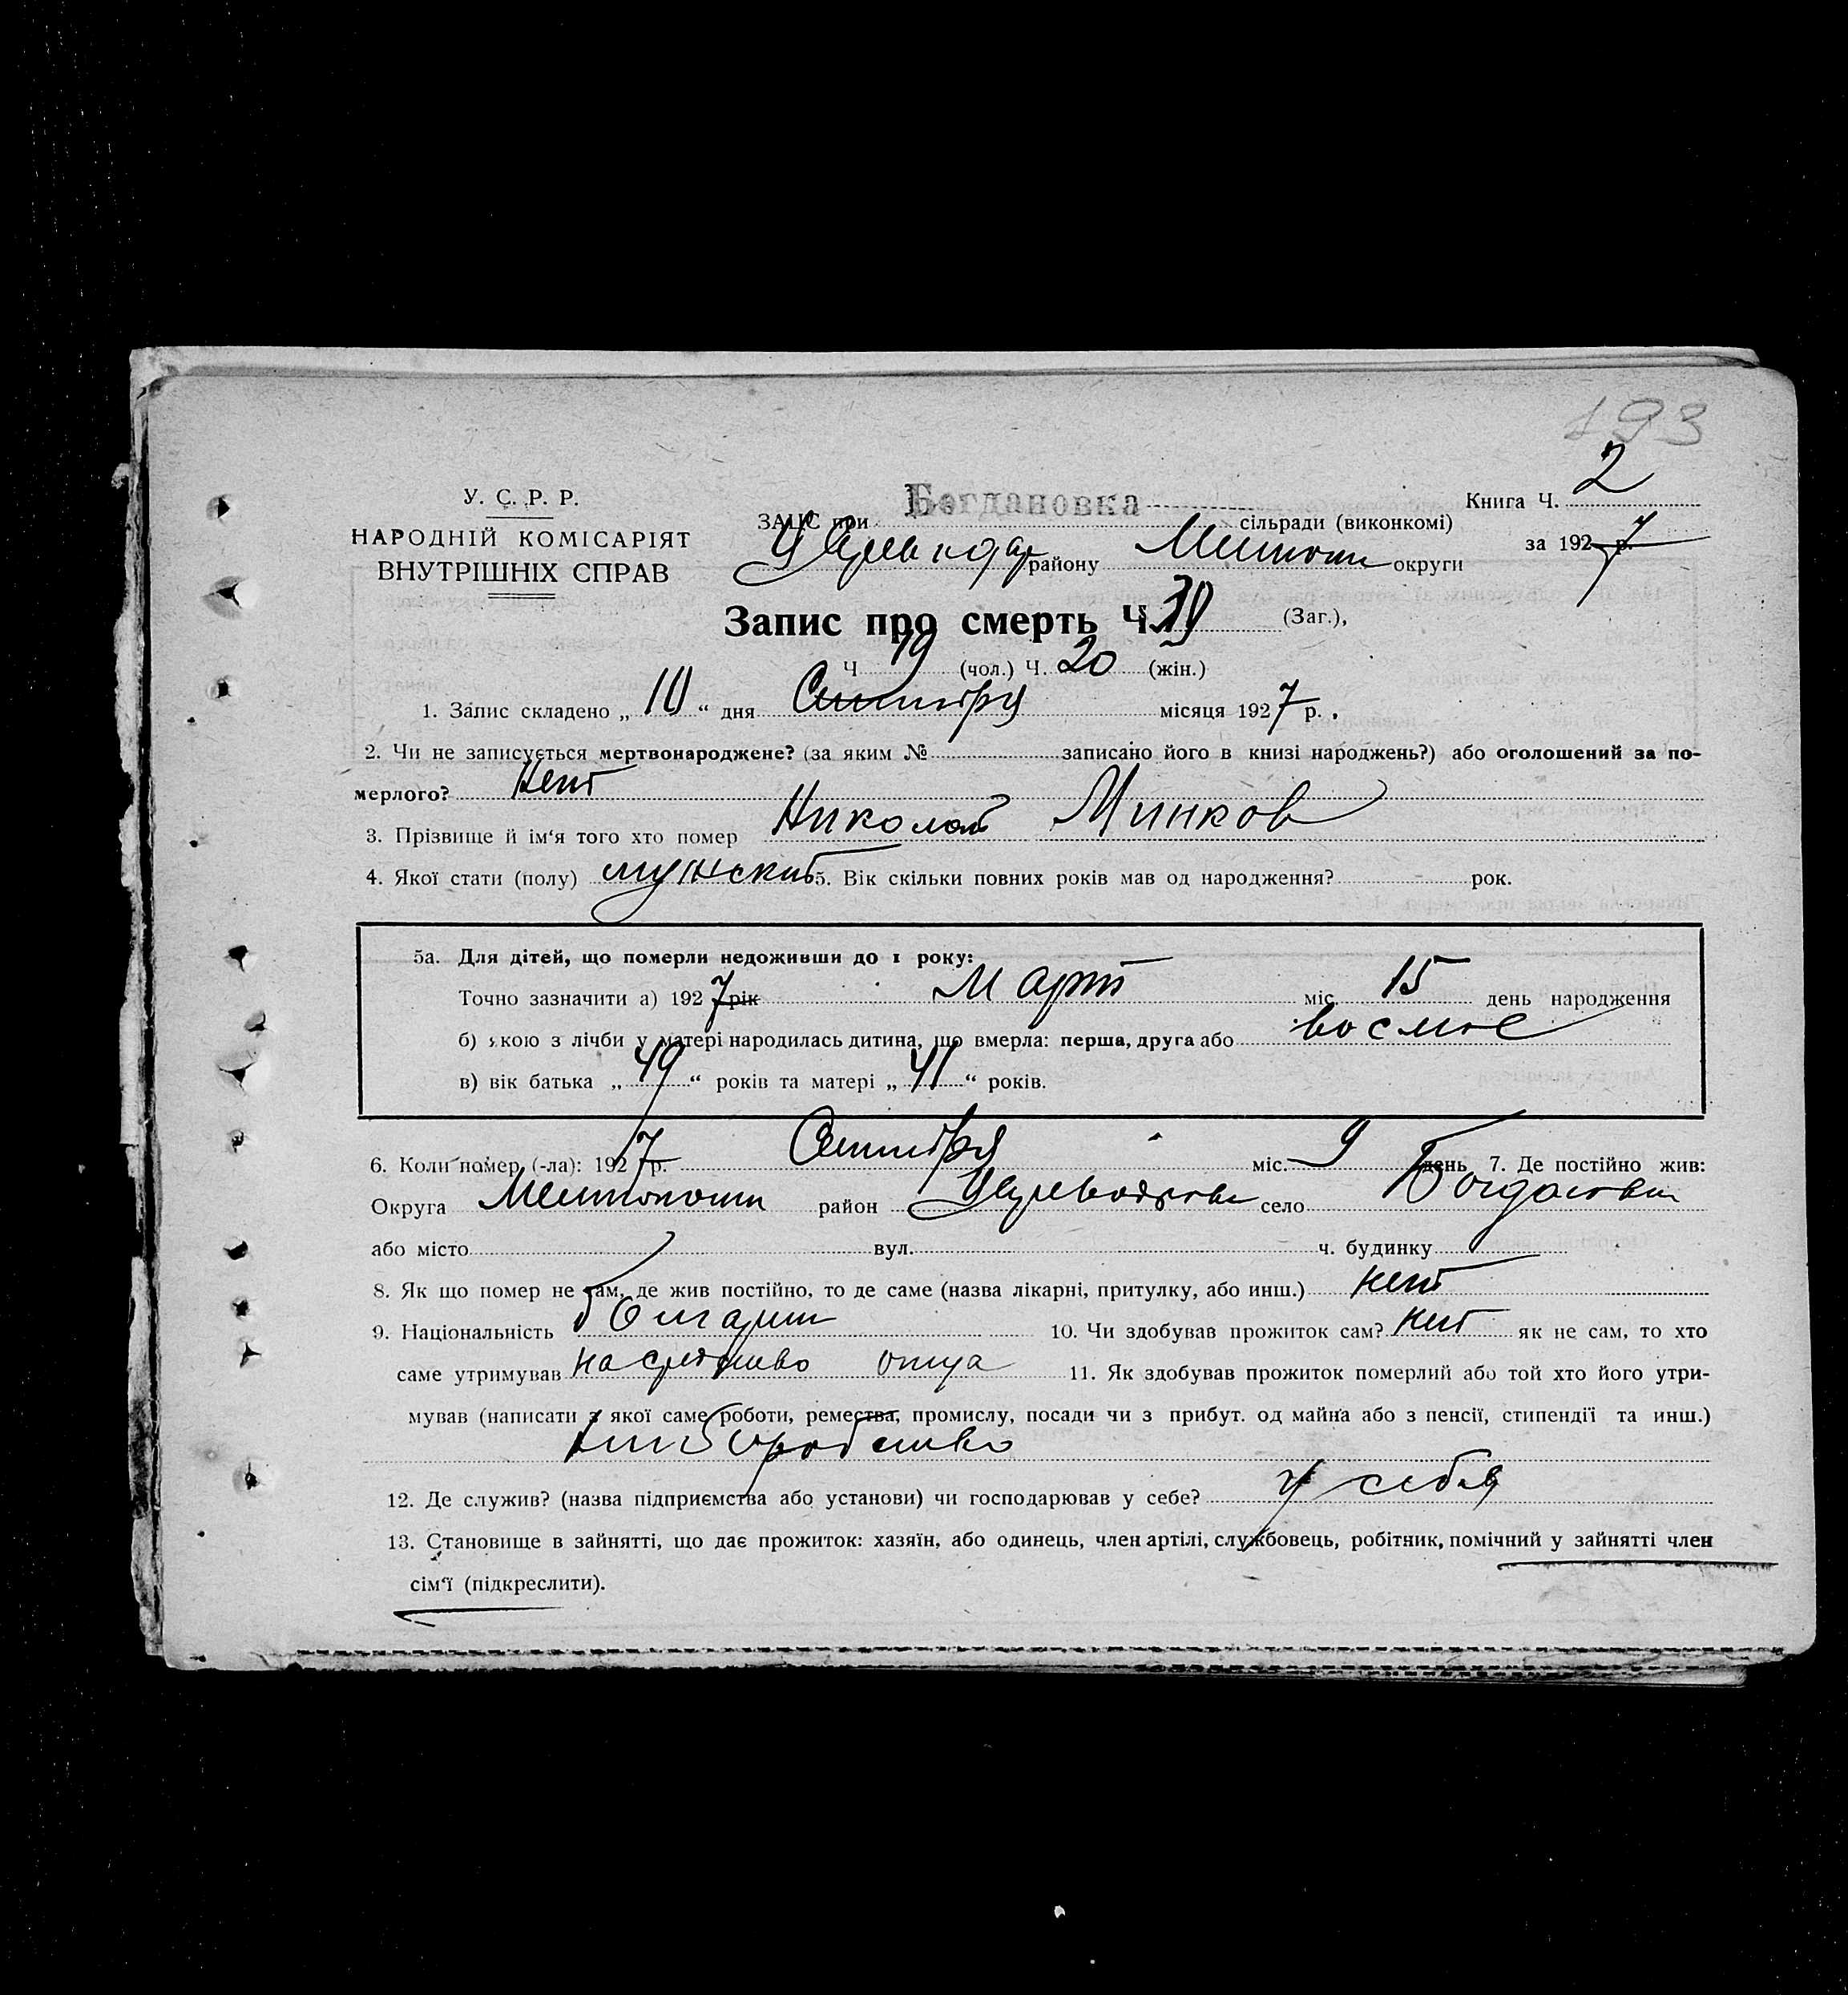 193
У. С. Р. Р.
НАРОДНІЙ КОМІСАРІЯТ
ВНУТРІШНІХ СПРАВ
Книга Ч. 2
за 1927 р.
ЗАЦС при Богдановка сільради (виконкомі)
району Мелитоп округи
Запис про смерть Ч. 39 (Заг.),
Ч 19 (чол.) Ч. 20 (жін.)
1. Запис складено „ 10 “ дня Сентября місяця 1927 р.
2. Чи не записується мертвонароджене? (за яким № записано його в книзі народжень?) або оголошений за по-
мерлого? нет
3. Прізвище й ім‘я того хто помер Николай Минков
4. Якої стати (полу) мужской 5. Вік скільки повних років мав од народження? - рок.
5а. Для дітей, що померли недоживши до 1 року:
Точно зазначити а) 1927 рік Март міс. 15 день народження
б) якою з лічби у матері народилась дитина, що вмерла: перша, друга або восмое
в) вік батька „ 49 “ років та матері „ 41 “ років.
6. Коли помер (-ла): 1927 р. Сентября міс. 9 день 7. Де постійно жив:
Округа Мелитополь район село Богдановка
або місто вул. ч. будинку
8. Як що помер не там, де жив постійно, то де саме (назва лікарні, притулку, або инш.) нет
9. Національність болгарин 10. Чи здобував прожиток сам? нет як не сам, то хто
саме утримував на средство отца 11. Як здобував прожиток померлий або той хто його утри-
мував (написати з якої саме роботи, ремества, промислу, посади чи з прибут. од майна або з пенсії, стипендії та инш.)
хлиборобство
12. Де служив? (назва підприємства або установи) чи господарював у себе? у себя
13. Становище в зайнятті, що дає прожиток: хазяїн, або одинець, член артілі, службовець, робітник, помічний у зайнятті член
сім‘ї (підкреслити).